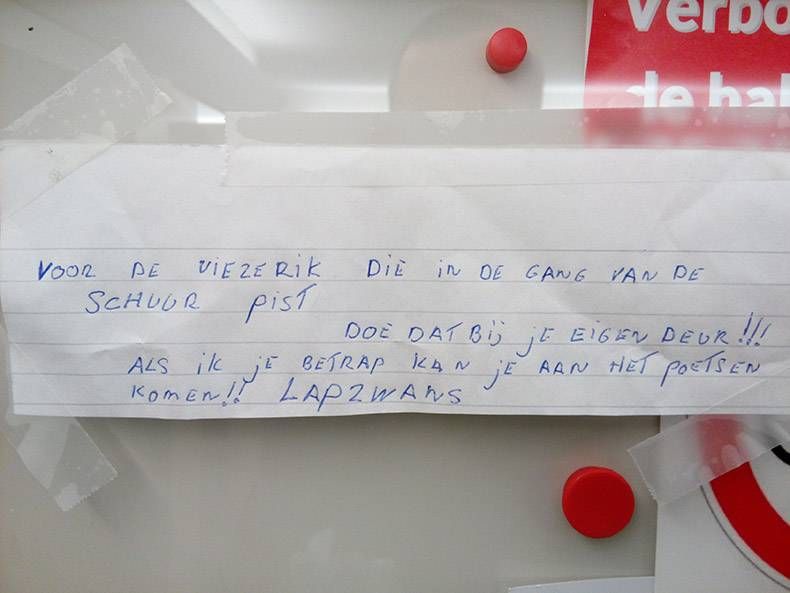 Verbo
de hal
VOOR DE VIEZERIK DIE IN DE GANG VAN DE
SCHUUR PIST
DOE DAT BIJ JE EIGEN DEUR!!!
ALS IK JE BETRAP KAN JE AAN HET POETSEN
KOMEN!! LAPZWANS